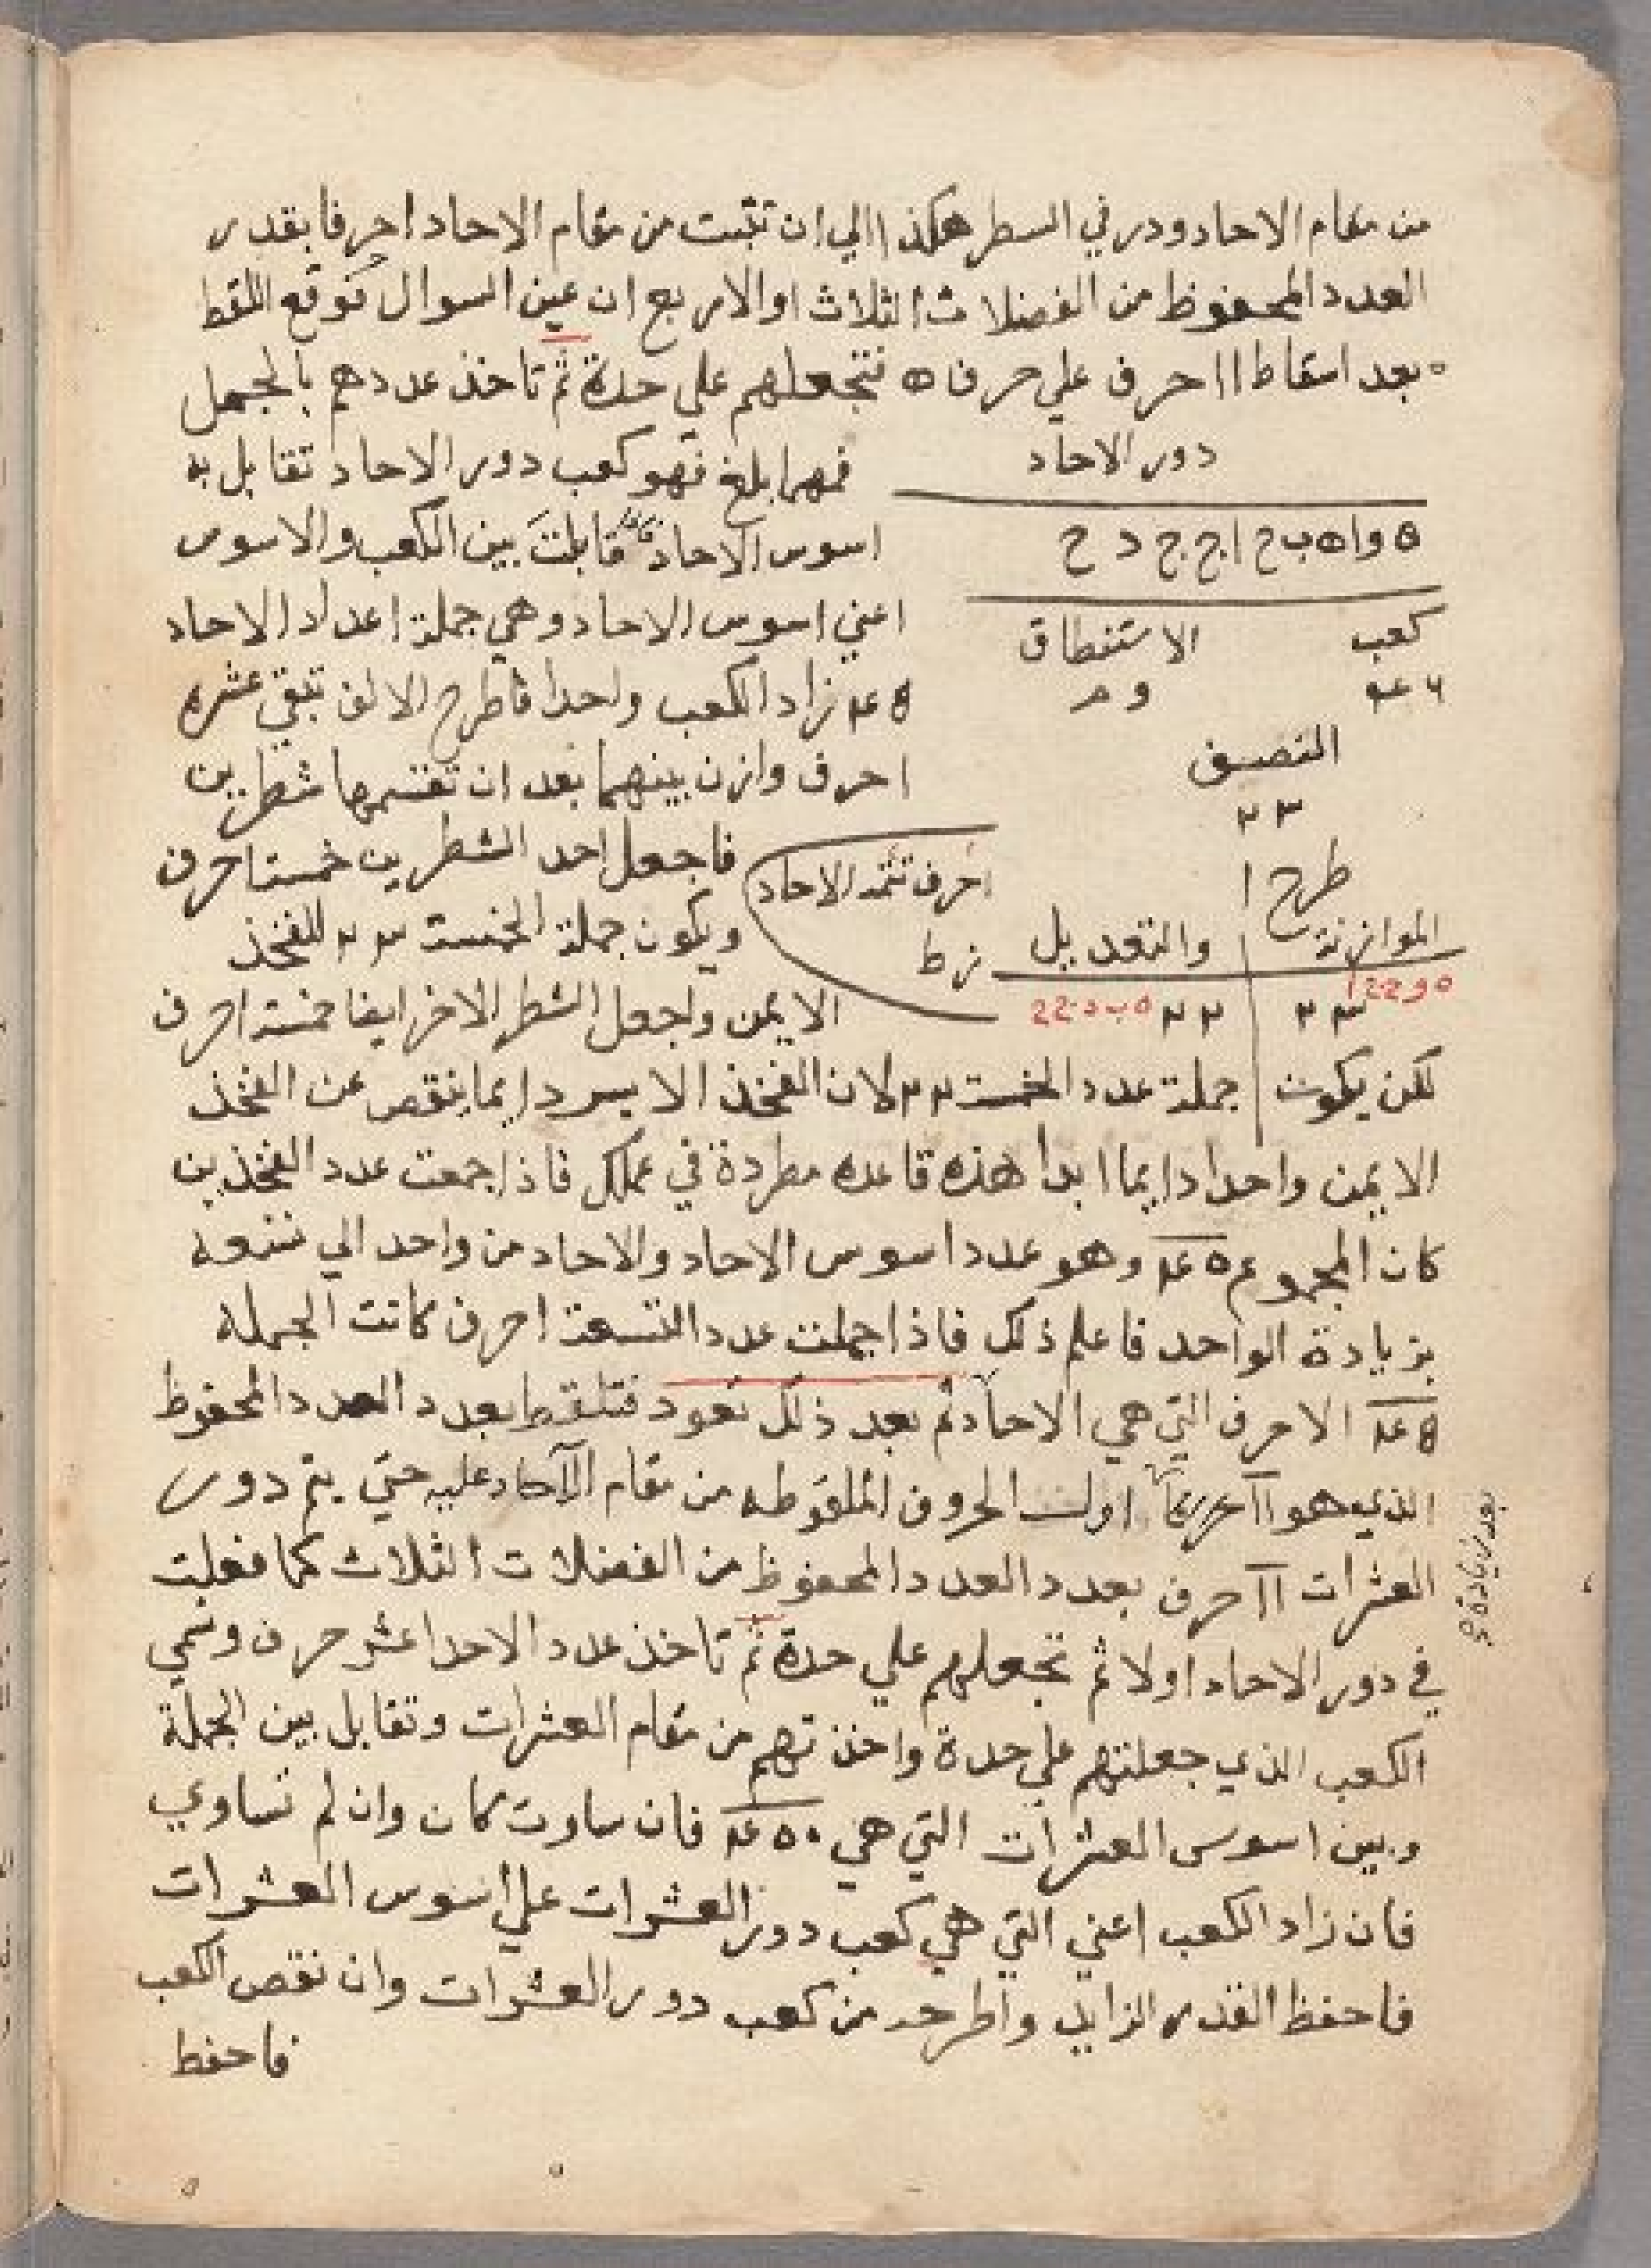 من مقام الاحاد ودر في السطر هكذا الي ان تثبت من مقام الاحاد احرفا بقدر
العدد المحفوظ من الفضلات الثلاث او الاربع ان عين السوال فوقع اللقط
بعد اسقاط ١١ حرف علي حرف ه فتجعلهم علي حدة ثم تاخذ عددهم بالجمل
دور الاحاد
فمهما بلغ فهو كعب دور الاحاد تقابل به
ه و ا ه ب ح ا ج ج د ح
اسوس الاحاد قابلت بين الكعب والاسوس
اعني اسوس الاحاد وهي جملة اعداد الاحاد
كعب
الاستنطاق
٤٦
و م
٤٥ زاد الكعب واحدا فاطرح الالف تبقي عشره
التنصيف
٢٣
احرف وازن بينهما بعد ان تقسمها شطرين
طرح ا
احرف تتمة الاحاد
فاجعل احد الشطرين خمسة احرف
الموازنة
والتعديل
ز ط
ويكون جملة الخمسة ٢٣ للفخذ
٢٣
٢٢
الايمن واجعل الشطر الاخر ايضا خمسة احرف
لكن يكون جملة عدد الخمسة ٢٢ لان الفخذ الايسر دايما ينقص عن الفخذ
الايمن واحدا دايما ابدا هذه قاعده مطردة في عملك فاذا جمعت عدد الفخذين
كان المجموع ٤٥ وهو عدد اسوس الاحاد والاحاد من واحد الي تسعه
بزيادة الواحد فاعلم ذلك فاذا جملت عدد التسعة احرف كانت الجمله
٤٥ الاحرف التي هي الاحاد ثم بعد ذلك تعود فتلقط بعدد العدد المحفوظ
الذي هو ١١ اولت الحروف الملقوطه من مقام الآحاد عليه حتي يتم دور
العشرات ١١ حرف بعدد العدد المحفوظ من الفضلات الثلاث كما فعلت
في دور الاحاد اولا ثم تجعلهم علي حدة ثم تاخذ عدد الاحدا عشر حرف وسمي
الكعب الذي جعلتهم علي حدة واخذتهم من مقام العشرات وتقابل بين الجملة
وبين اسوس العشرات التي هي ٤٥٠ فان ساوت كان وان لم تساوي
فان زاد الكعب اعني التي هي كعب دور العشرات علي اسوس العشرات
فاحفظ القدر الزايد واطرحه من كعب دور العشرات وان نقص الكعب
فاحفظ
بعد زيادة